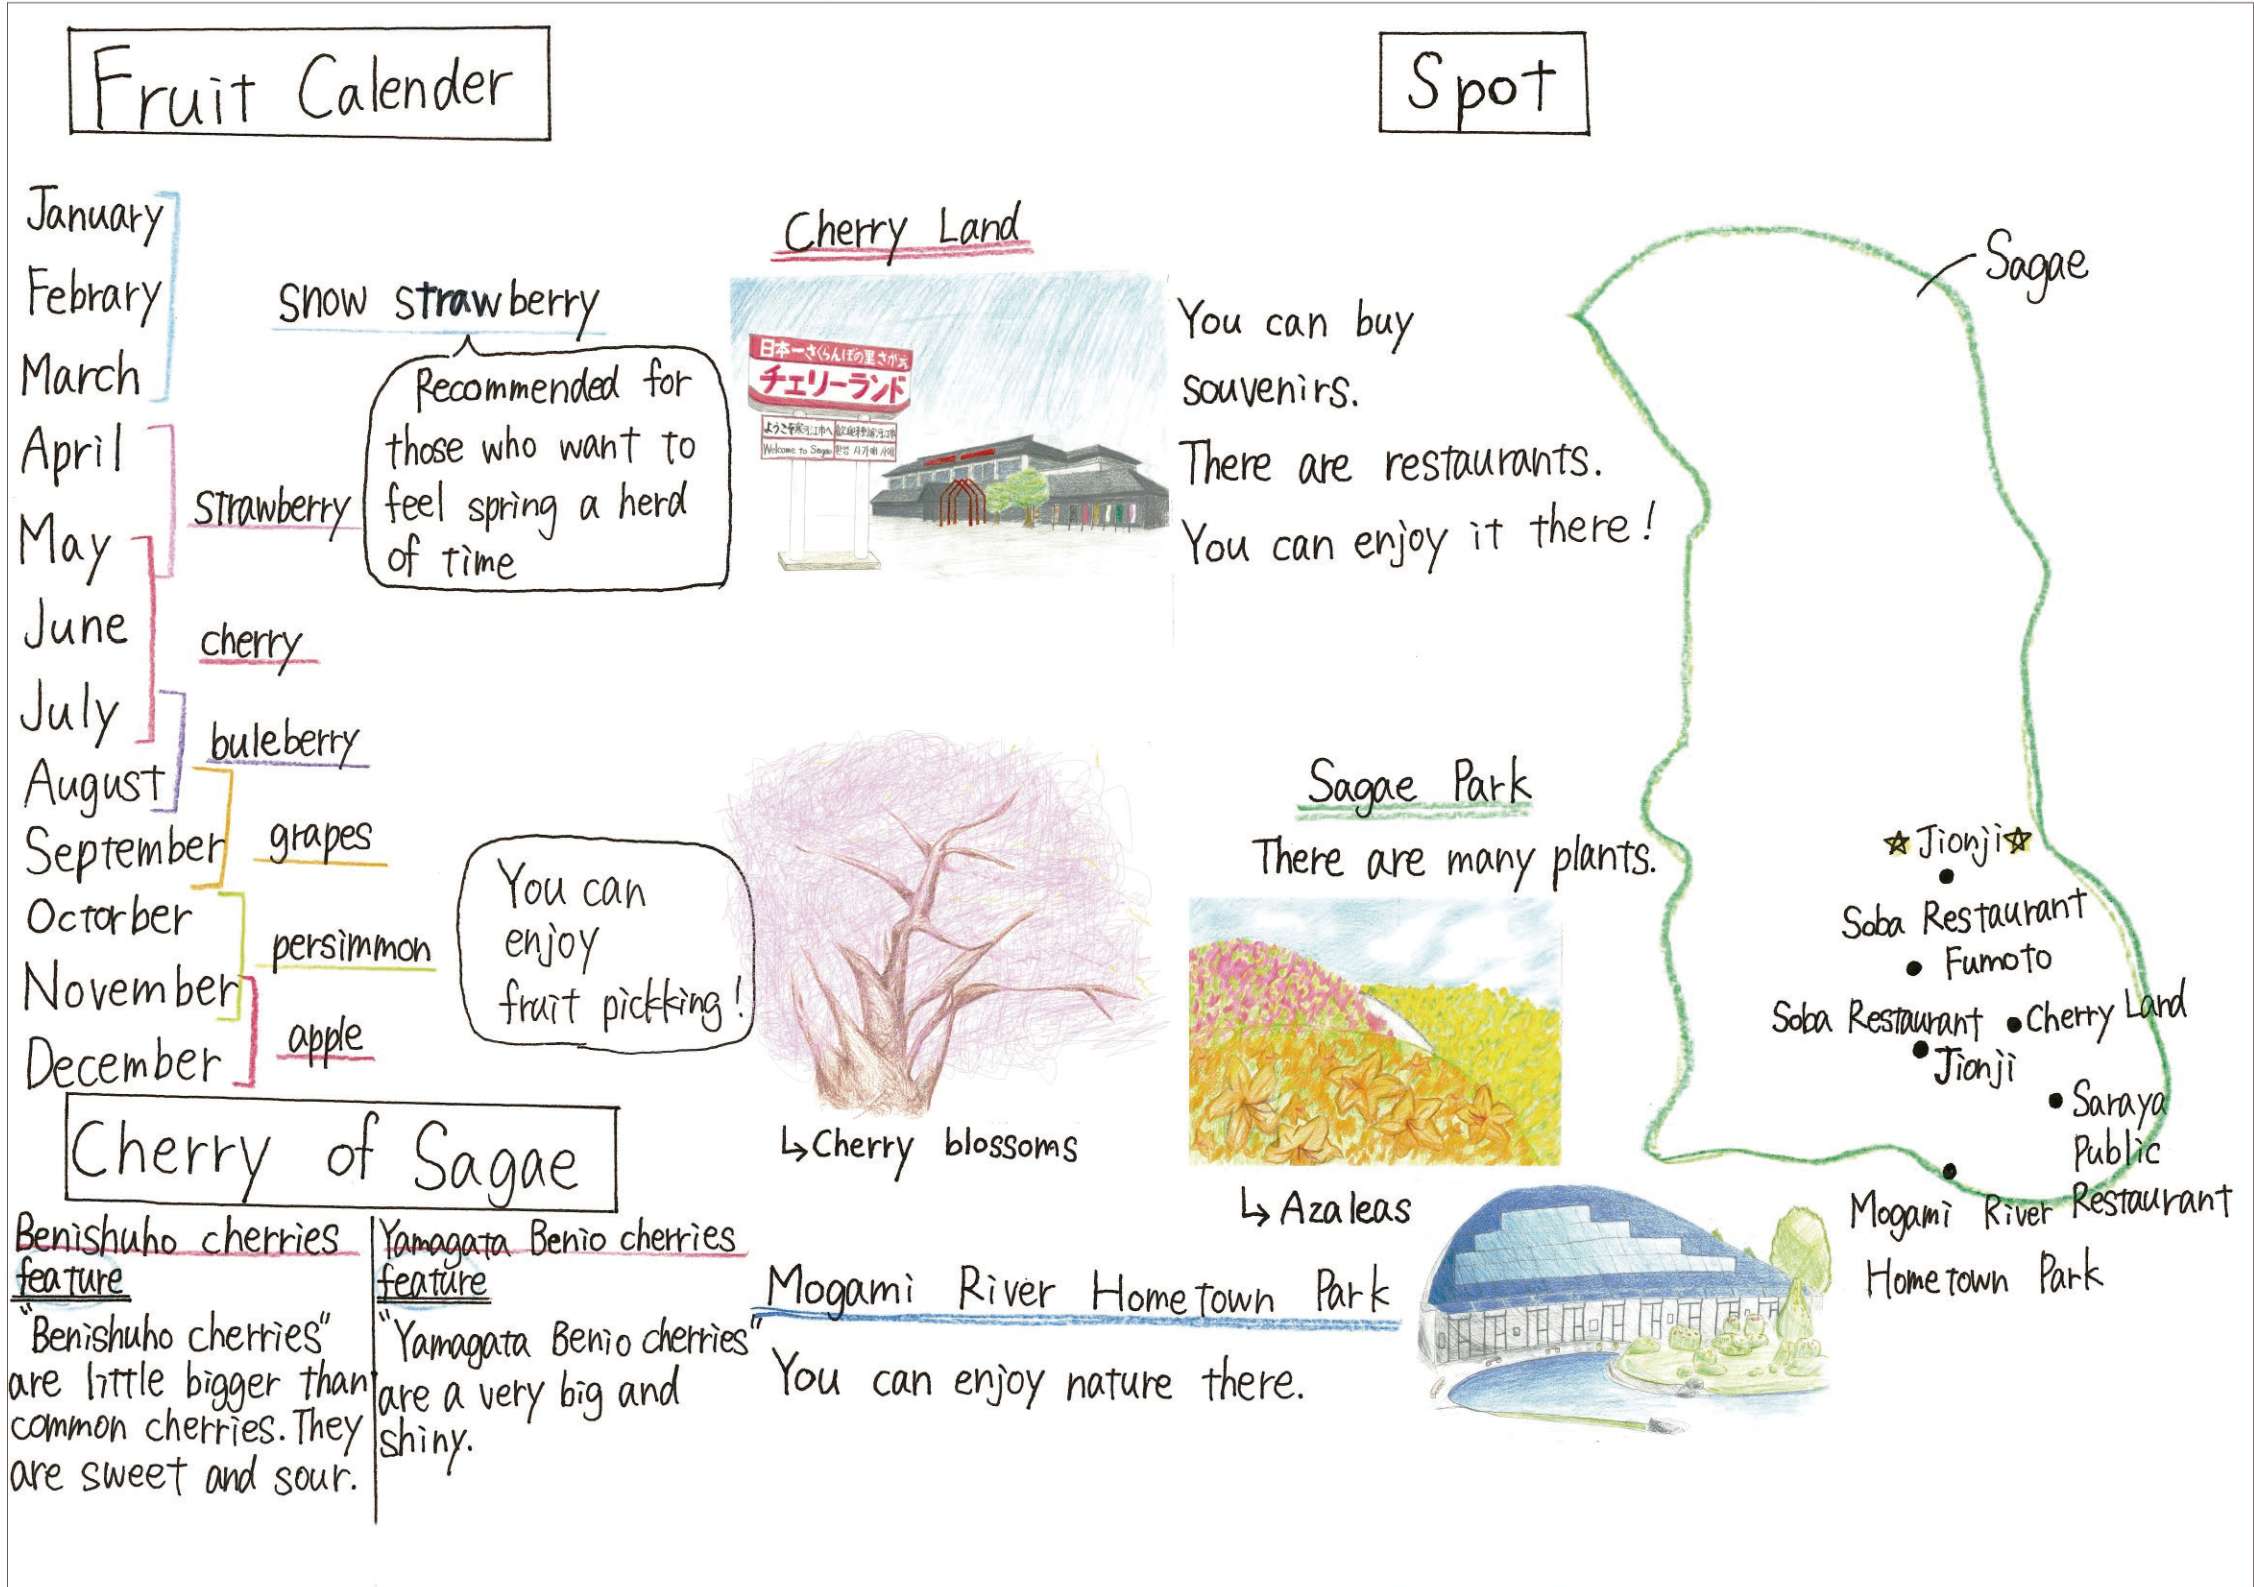 Fruit Calender
January
Febrary
March
April
May
June
July
August
September
Octorber
November
December
snow strawberry
Recommended for
those who want to
feel spring a herd
of time
strawberry
cherry
buleberry
grapes
persimmon
apple
You can
enjoy
fruit pickking!
Cherry of Sagae
Benishuho cherries
feature
"Benishuho cherries"
are little bigger than
common cherries. They
are sweet and sour.
Yamagata Benio cherries
feature
"Yamagata Benio cherries"
are a very big and
shiny.
Spot
Cherry Land
日本一さくらんぼの里さがえ
チェリーランド
ようこそ寒河江市へ
Welcome to Sagae
You can buy
souvenirs.
There are restaurants.
You can enjoy it there!
Sagae Park
There are many plants.
↳Cherry blossoms
↳Azaleas
Mogami River Hometown Park
You can enjoy nature there.
Sagae
☆Jionji☆
Soba Restaurant
Fumoto
Soba Restaurant
Jionji
Cherry Land
Saraya
Public
Restaurant
Mogami River
Hometown Park